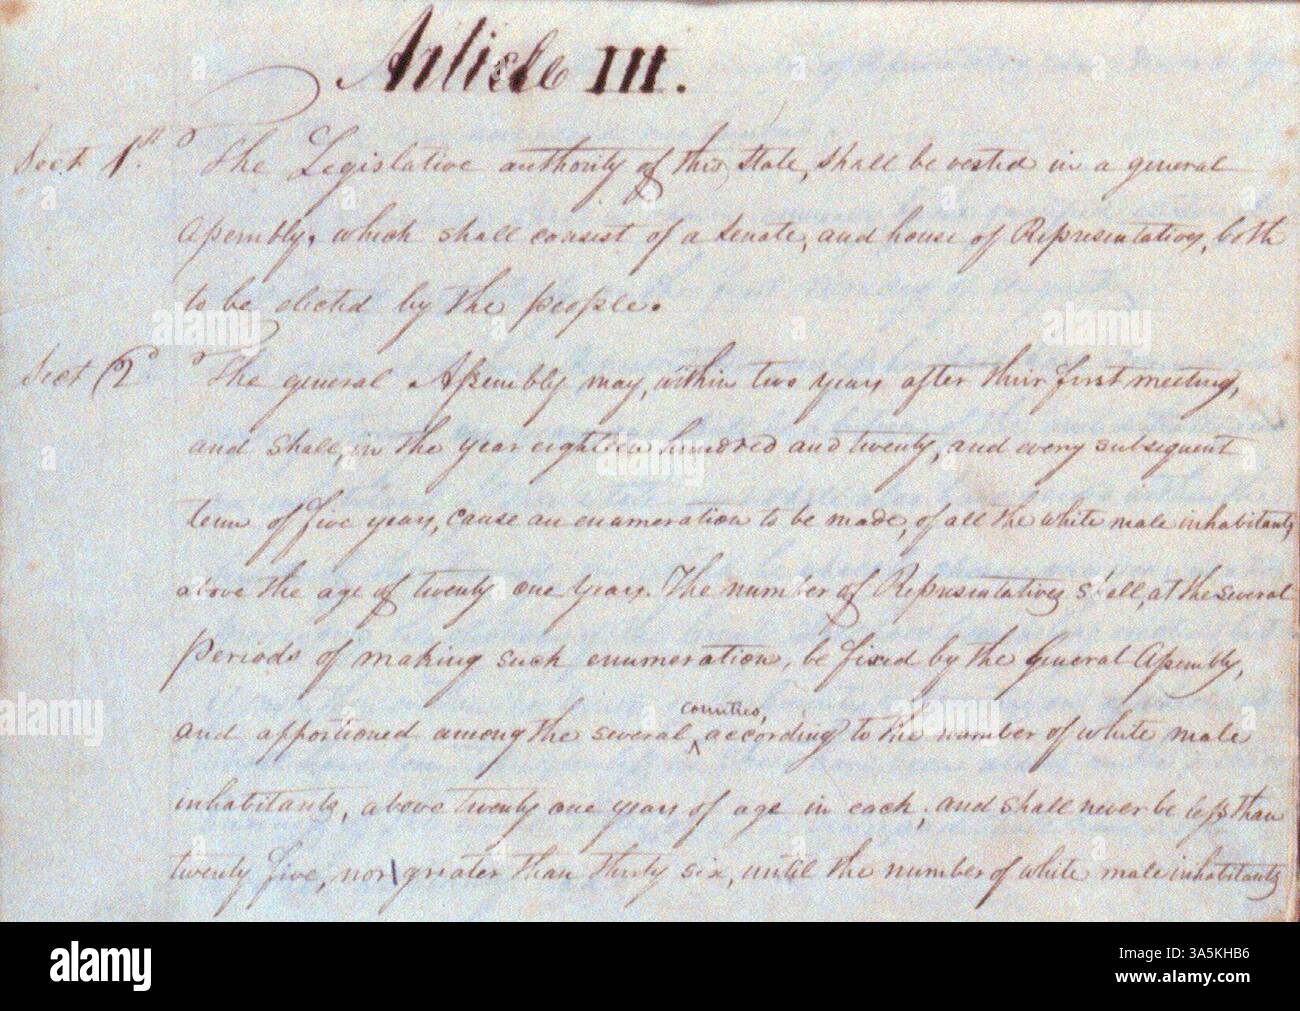 Article III.
Sect 1st. The Legislative authority of this State, shall be vested in a general
Assembly, which shall consist of a Senate, and house of Representatives, both
to be elected by the people.
Sect 2d. The general Assembly may, within two years after their first meeting,
and shall, in the year eighteen hundred and twenty, and every subsequent
term of five years, cause an enumeration to be made, of all the white male inhabitants
above the age of twenty one years. The number of Representatives shall, at the several
periods of making such enumeration, be fixed by the General Assembly,
counties,
and apportioned among the several ^ according to the number of white male
inhabitants, above twenty one years of age in each; and shall never be less than
twenty five, nor greater than thirty six, until the number of white male inhabitants
alamy
alamy
alamy
alamy
alamy
alamy
alamy
Image ID: 3A5KHB6
www.alamy.com